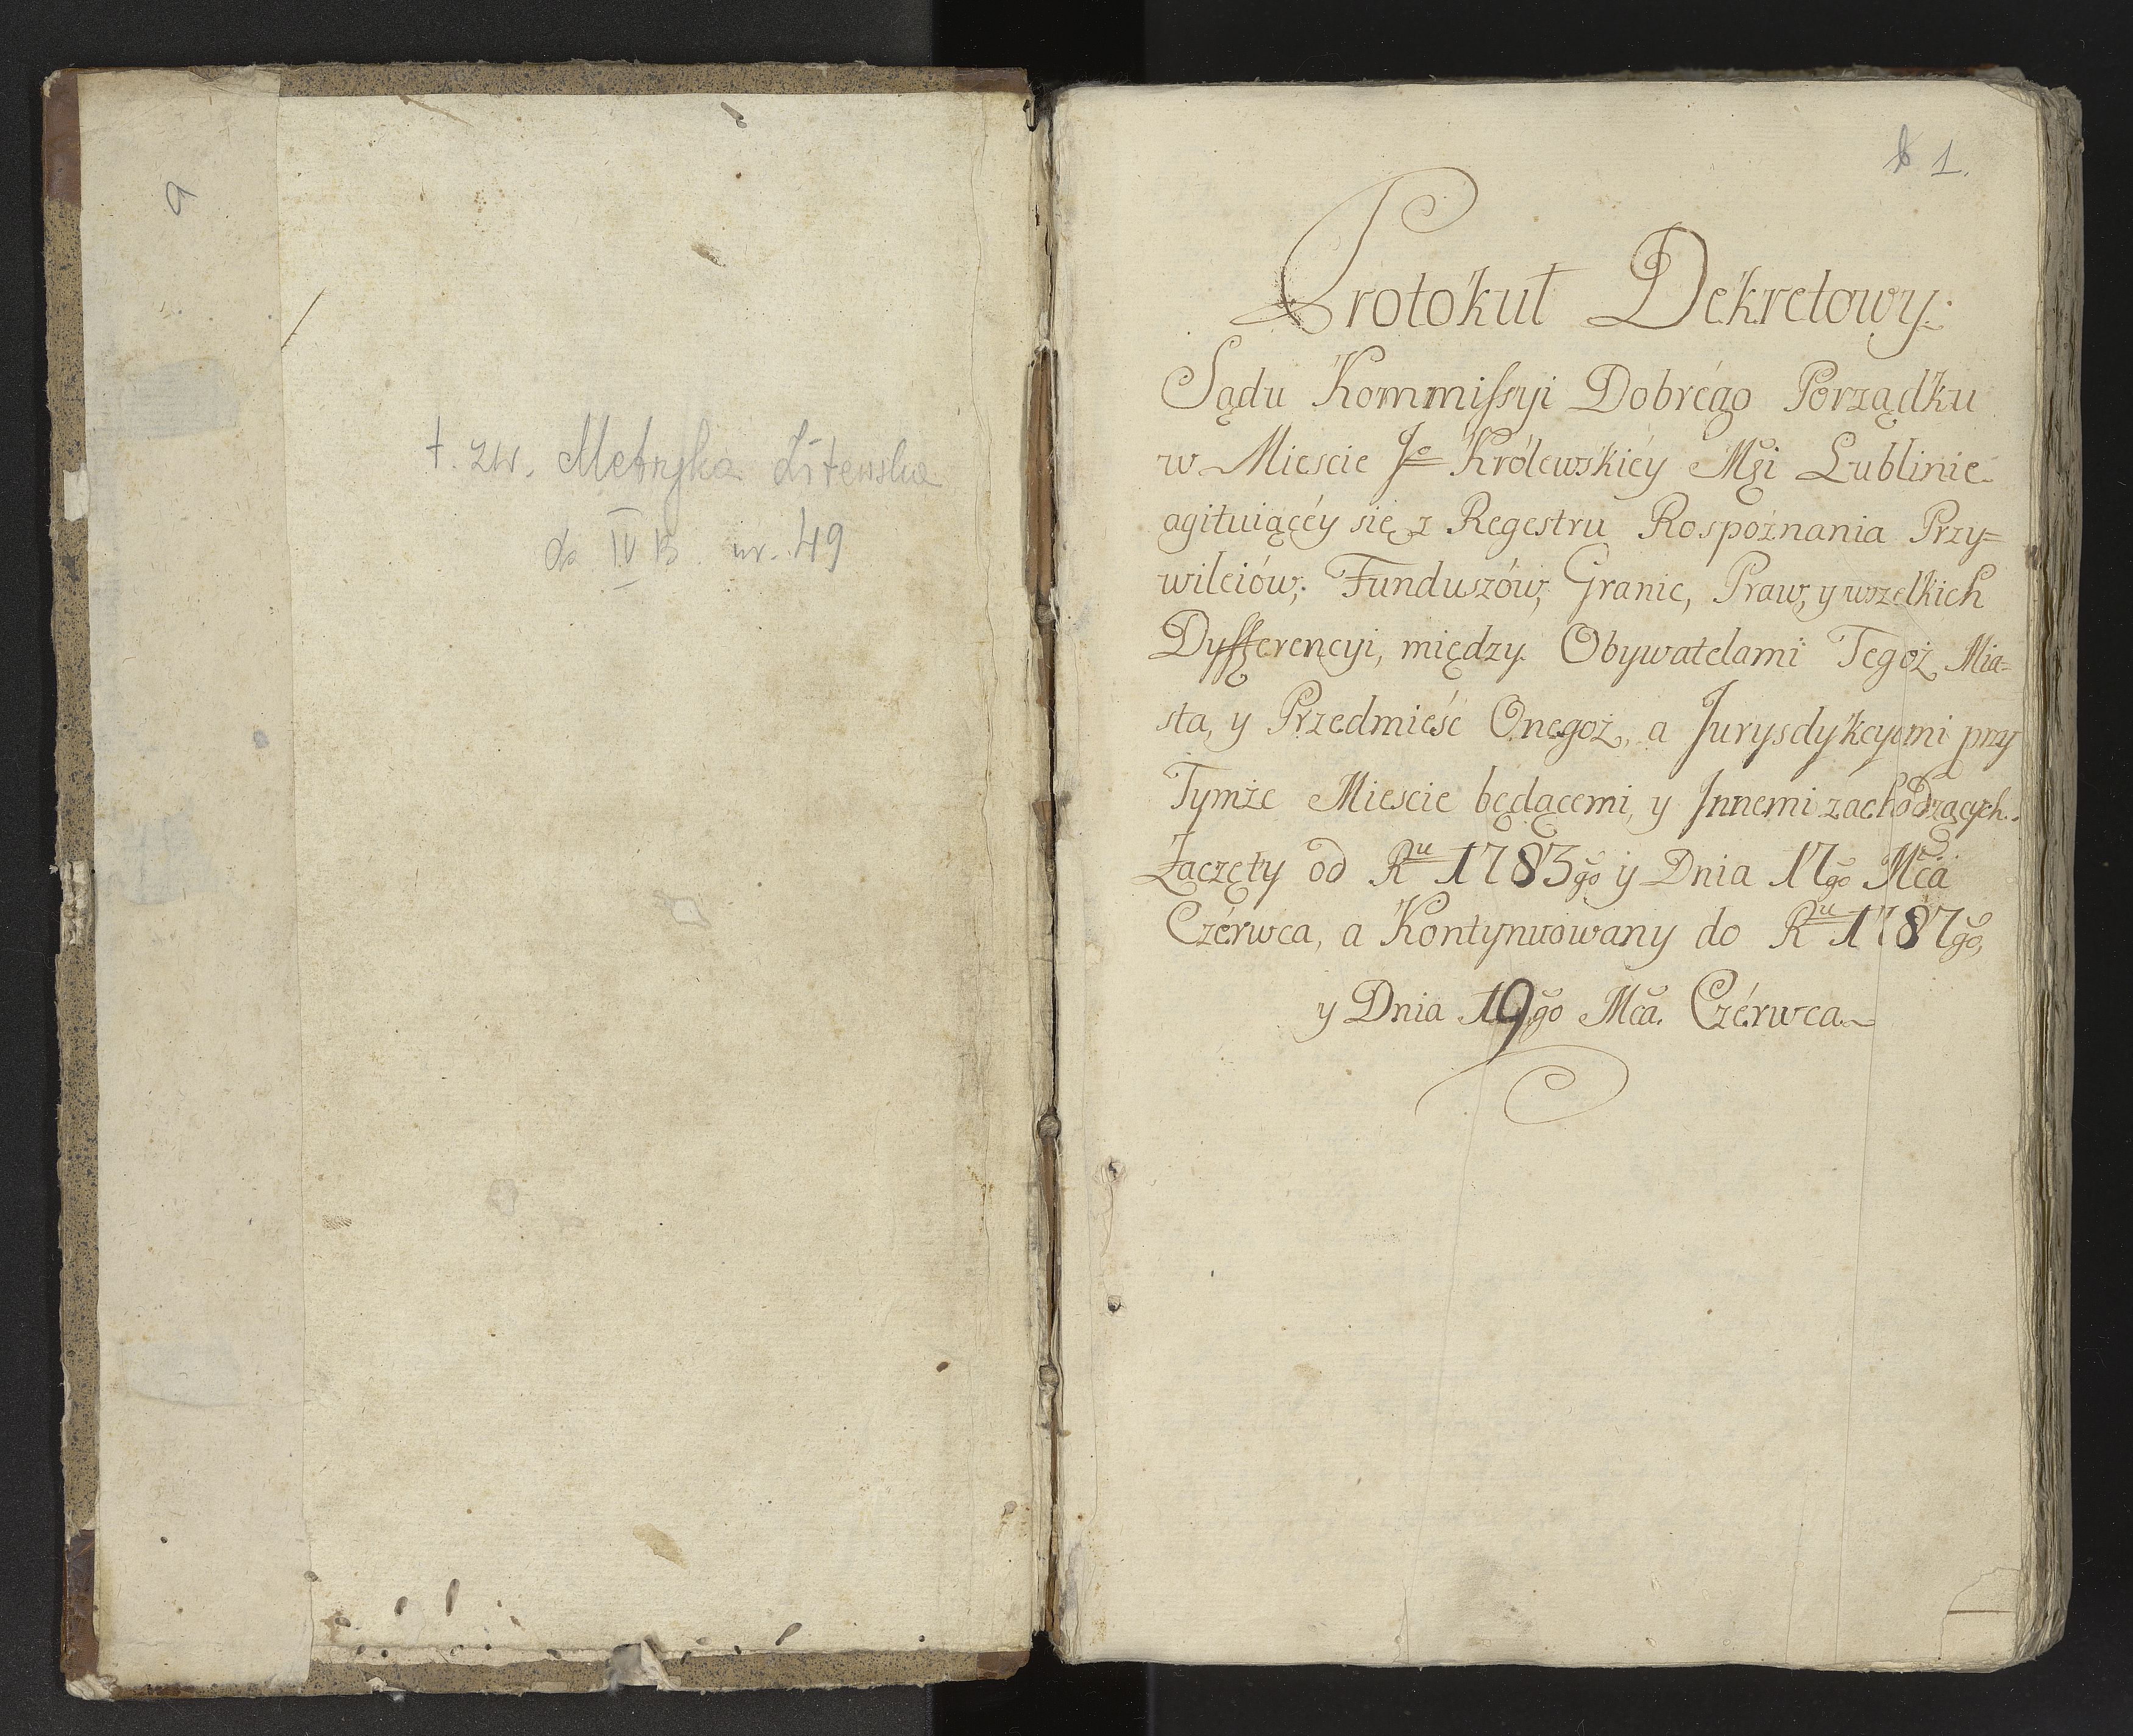 a
t. zw. Metryka Litewska
do IV B. nr. 49
1.
Protokuł Dekretowy.
Sądu Kommissyi Dobrégo Porządku
w Miescie Je Królewskiéy Mći Lublinie
agituiącéy się z Regestru Rospoznania Przy=
wileiów, Funduszów, Granic, Praw, y wszelkich
Dyfferencyi, między Obywatelami Tegoż Mia=
sta, y Przedmieść Onegoż, a Jurysdykcyami przy
Tymże Miescie będącemi, y Jnnemi zachodzących.
Zaczęty od Ru 1783go y Dnia 17go Mca
Czérwca, a Kontynuowany do Ru 1787go,
y Dnia 19go Mca. Czérwca